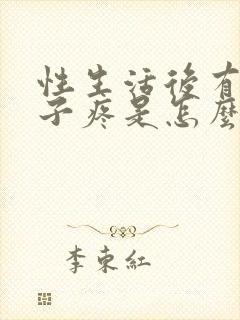 性生活後有
子疼是怎麼
李東紅